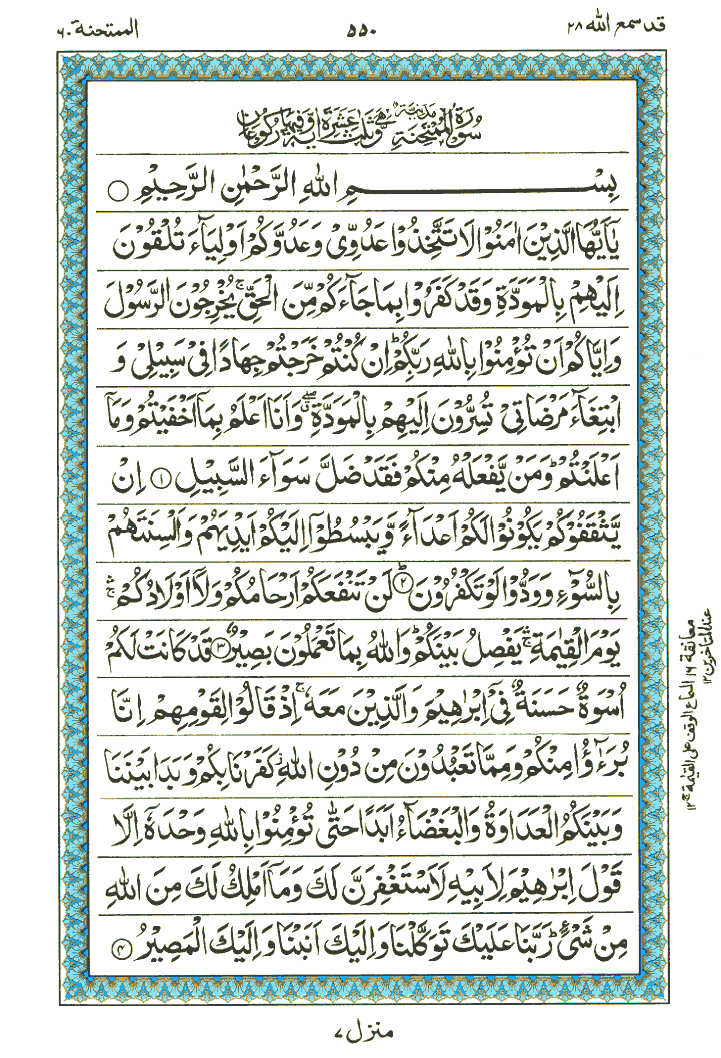 قد سمع الله ٢٨
٥٥٠
الممتحنة ٦٠
سُوْرَةُ الْمُمْتَحِنَةِ مَدَنِيَّةٌ وَّهِيَ ثَلٰثَ عَشْرَةَ اٰيَةً وَّفِيْهَا رُكُوْعَانِ
بِسْمِ اللهِ الرَّحْمٰنِ الرَّحِيْمِ ○
يٰۤاَيُّهَا الَّذِيْنَ اٰمَنُوْا لَا تَتَّخِذُوْا عَدُوِّىْ وَعَدُوَّكُمْ اَوْلِيَآءَ تُلْقُوْنَ
اِلَيْهِمْ بِالْمَوَدَّةِ وَقَدْ كَفَرُوْا بِمَا جَآءَكُمْ مِّنَ الْحَقِّ ۚ يُخْرِجُوْنَ الرَّسُوْلَ
وَاِيَّاكُمْ اَنْ تُؤْمِنُوْا بِاللهِ رَبِّكُمْ ؕ اِنْ كُنْتُمْ خَرَجْتُمْ جِهَادًا فِىْ سَبِيْلِىْ وَ
ابْتِغَآءَ مَرْضَاتِىْ تُسِرُّوْنَ اِلَيْهِمْ بِالْمَوَدَّةِ ۖ وَاَنَا اَعْلَمُ بِمَاۤ اَخْفَيْتُمْ وَمَاۤ
اَعْلَنْتُمْ ؕ وَمَنْ يَّفْعَلْهُ مِنْكُمْ فَقَدْ ضَلَّ سَوَآءَ السَّبِيْلِ ① اِنْ
يَّثْقَفُوْكُمْ يَكُوْنُوْا لَكُمْ اَعْدَآءً وَّيَبْسُطُوْۤا اِلَيْكُمْ اَيْدِيَهُمْ وَاَلْسِنَتَهُمْ
بِالسُّوْٓءِ وَوَدُّوْا لَوْ تَكْفُرُوْنَ ② ؕ لَنْ تَنْفَعَكُمْ اَرْحَامُكُمْ وَلَاۤ اَوْلَادُكُمْ ۛۚ
يَوْمَ الْقِيٰمَةِ ۛۚ يَفْصِلُ بَيْنَكُمْ ؕ وَاللهُ بِمَا تَعْمَلُوْنَ بَصِيْرٌ ③ قَدْ كَانَتْ لَكُمْ
اُسْوَةٌ حَسَنَةٌ فِىْۤ اِبْرٰهِيْمَ وَالَّذِيْنَ مَعَهٗ ۚ اِذْ قَالُوْا لِقَوْمِهِمْ اِنَّا
بُرَءٰٓؤُا مِنْكُمْ وَمِمَّا تَعْبُدُوْنَ مِنْ دُوْنِ اللهِ ؗ كَفَرْنَا بِكُمْ وَبَدَا بَيْنَنَا
وَبَيْنَكُمُ الْعَدَاوَةُ وَالْبَغْضَآءُ اَبَدًا حَتّٰى تُؤْمِنُوْا بِاللهِ وَحْدَهٗۤ اِلَّا
قَوْلَ اِبْرٰهِيْمَ لِاَبِيْهِ لَاَسْتَغْفِرَنَّ لَكَ وَمَاۤ اَمْلِكُ لَكَ مِنَ اللهِ
مِنْ شَىْءٍ ؕ رَبَّنَا عَلَيْكَ تَوَكَّلْنَا وَاِلَيْكَ اَنَبْنَا وَاِلَيْكَ الْمَصِيْرُ ④
معانقة ١٦
عند المتاخرين ١٢
الوقف على القيمة
منزل ٧